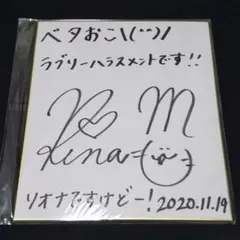 ベタおこ\(¨)/
ラブリーハラスメントです!!
R♡M
Rena
リオナですけどー! 2020.11.19